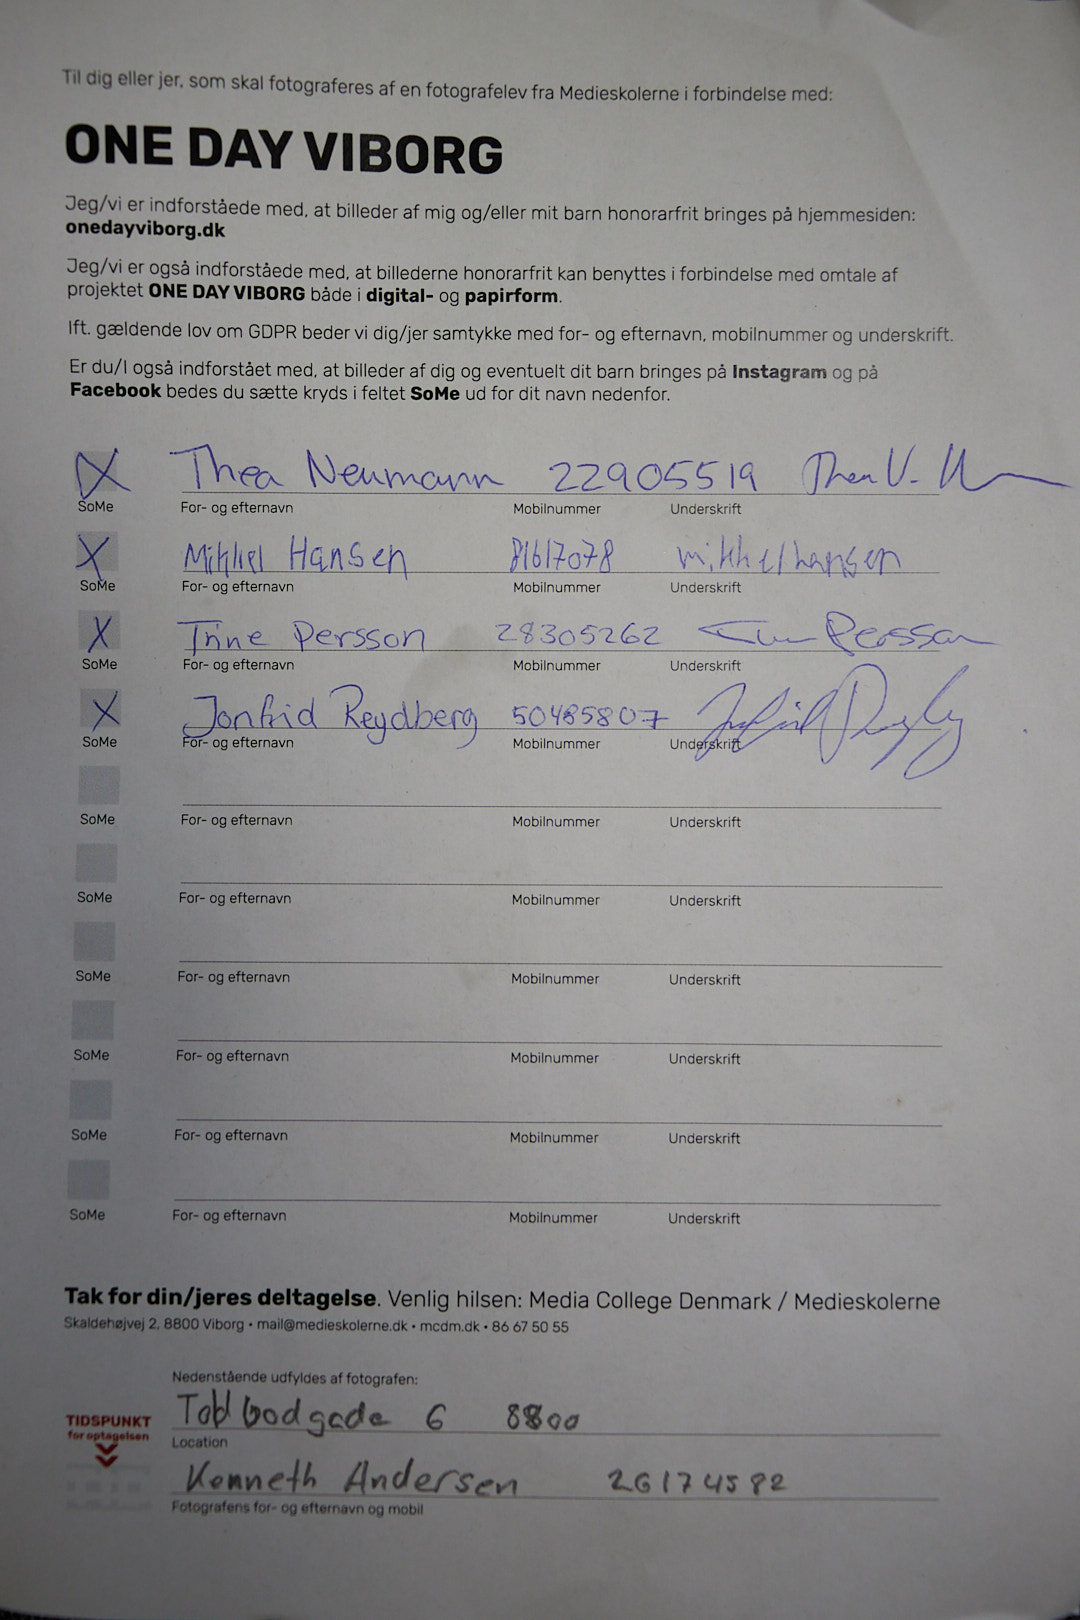 Til dig eller jer, som skal fotograferes af en fotografelev fra Medieskolerne i forbindelse med:
ONE DAY VIBORG
Jeg/vi er indforståede med, at billeder af mig og/eller mit barn honorarfrit bringes på hjemmesiden:
onedayviborg.dk
Jeg/vi er også indforståede med, at billederne honorarfrit kan benyttes i forbindelse med omtale af
projektet ONE DAY VIBORG både i digital- og papirform.
Ift. gældende lov om GDPR beder vi dig/jer samtykke med for- og efternavn, mobilnummer og underskrift.
Er du/I også indforstået med, at billeder af dig og eventuelt dit barn bringes på Instagram og på
Facebook bedes du sætte kryds i feltet SoMe ud for dit navn nedenfor.
X Thea Neumann 22905519 Thea V.
SoMe For- og efternavn Mobilnummer Underskrift
X Mikkel Hansen 81617078 mikkel hansen
SoMe For- og efternavn Mobilnummer Underskrift
X Trine Persson 28305262 Persson
SoMe For- og efternavn Mobilnummer Underskrift
X Jonfrid Reydberg 50485807
SoMe For- og efternavn Mobilnummer Underskrift
SoMe For- og efternavn Mobilnummer Underskrift
SoMe For- og efternavn Mobilnummer Underskrift
SoMe For- og efternavn Mobilnummer Underskrift
SoMe For- og efternavn Mobilnummer Underskrift
SoMe For- og efternavn Mobilnummer Underskrift
SoMe For- og efternavn Mobilnummer Underskrift
Tak for din/jeres deltagelse. Venlig hilsen: Media College Denmark / Medieskolerne
Skaldehøjvej 2, 8800 Viborg • mail@medieskolerne.dk • mcdm.dk • 86 67 50 55
Nedenstående udfyldes af fotografen:
6 8800
TIDSPUNKT
for optagelsen
Location
Kenneth Andersen 26174582
Fotografens for- og efternavn og mobil